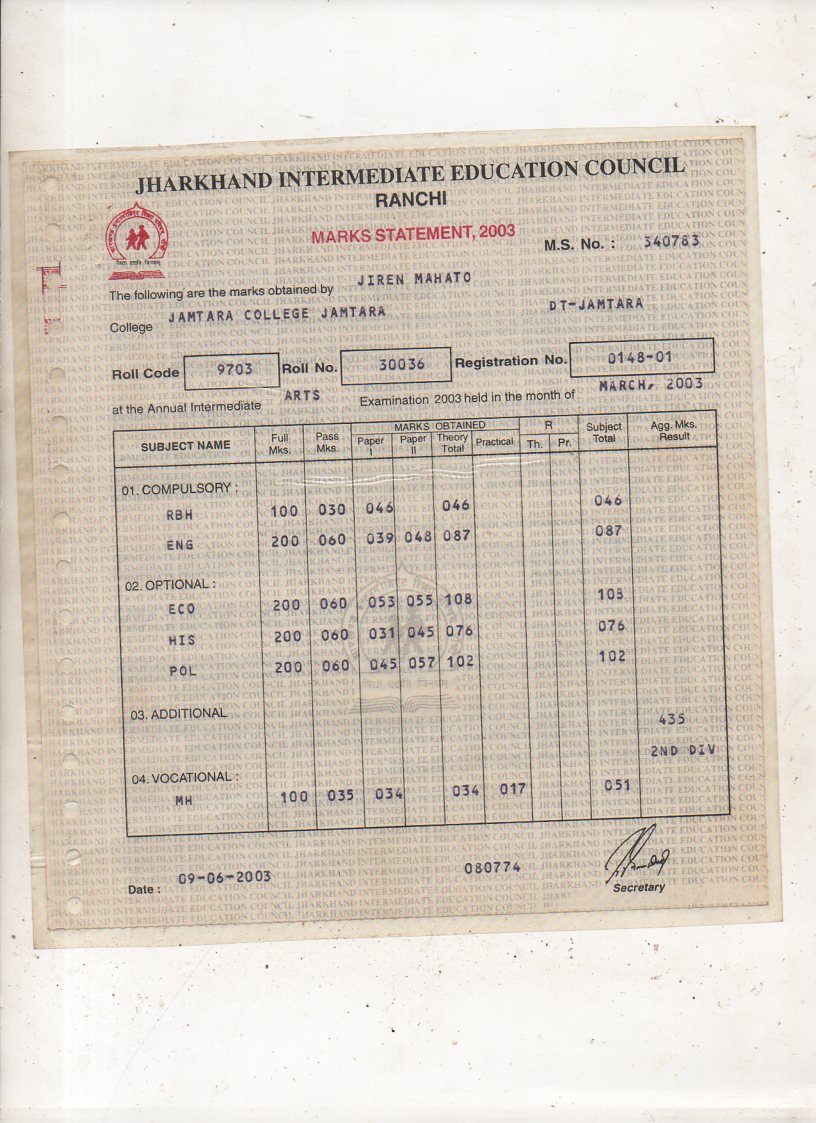 JHARKHAND INTERMEDIATE EDUCATION COUNCIL
RANCHI
MARKS STATEMENT, 2003
M.S. No. : 340783
The following are the marks obtained by JIREN MAHATO
College JAMTARA COLLEGE JAMTARA DT-JAMTARA
Roll Code 9703 Roll No. 30036 Registration No. 0148-01
at the Annual Intermediate ARTS Examination 2003 held in the month of MARCH, 2003
SUBJECT NAME Full Mks. Pass Mks. MARKS OBTAINED Paper I Paper II Theory Total Practical R Th. Pr. Subject Total Agg. Mks. Result
01. COMPULSORY :
RBH 100 030 046 046 046
ENG 200 060 039 048 087 087
02. OPTIONAL :
ECO 200 060 053 055 108 108
HIS 200 060 031 045 076 076
POL 200 060 045 057 102 102
03. ADDITIONAL
435
2ND DIV
04. VOCATIONAL :
MH 100 035 034 034 017 051
Date : 09-06-2003 080774
Secretary